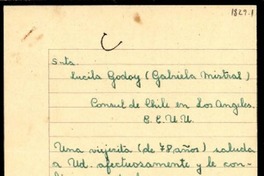 1829.1
Srta.
Lucila Godoy (Gabriela Mistral)
Consul de Chile en Los Angeles.
E.E.U.U.
Una viejecita (de 78 años) saluda
a Ud. afectuosamente y le con-